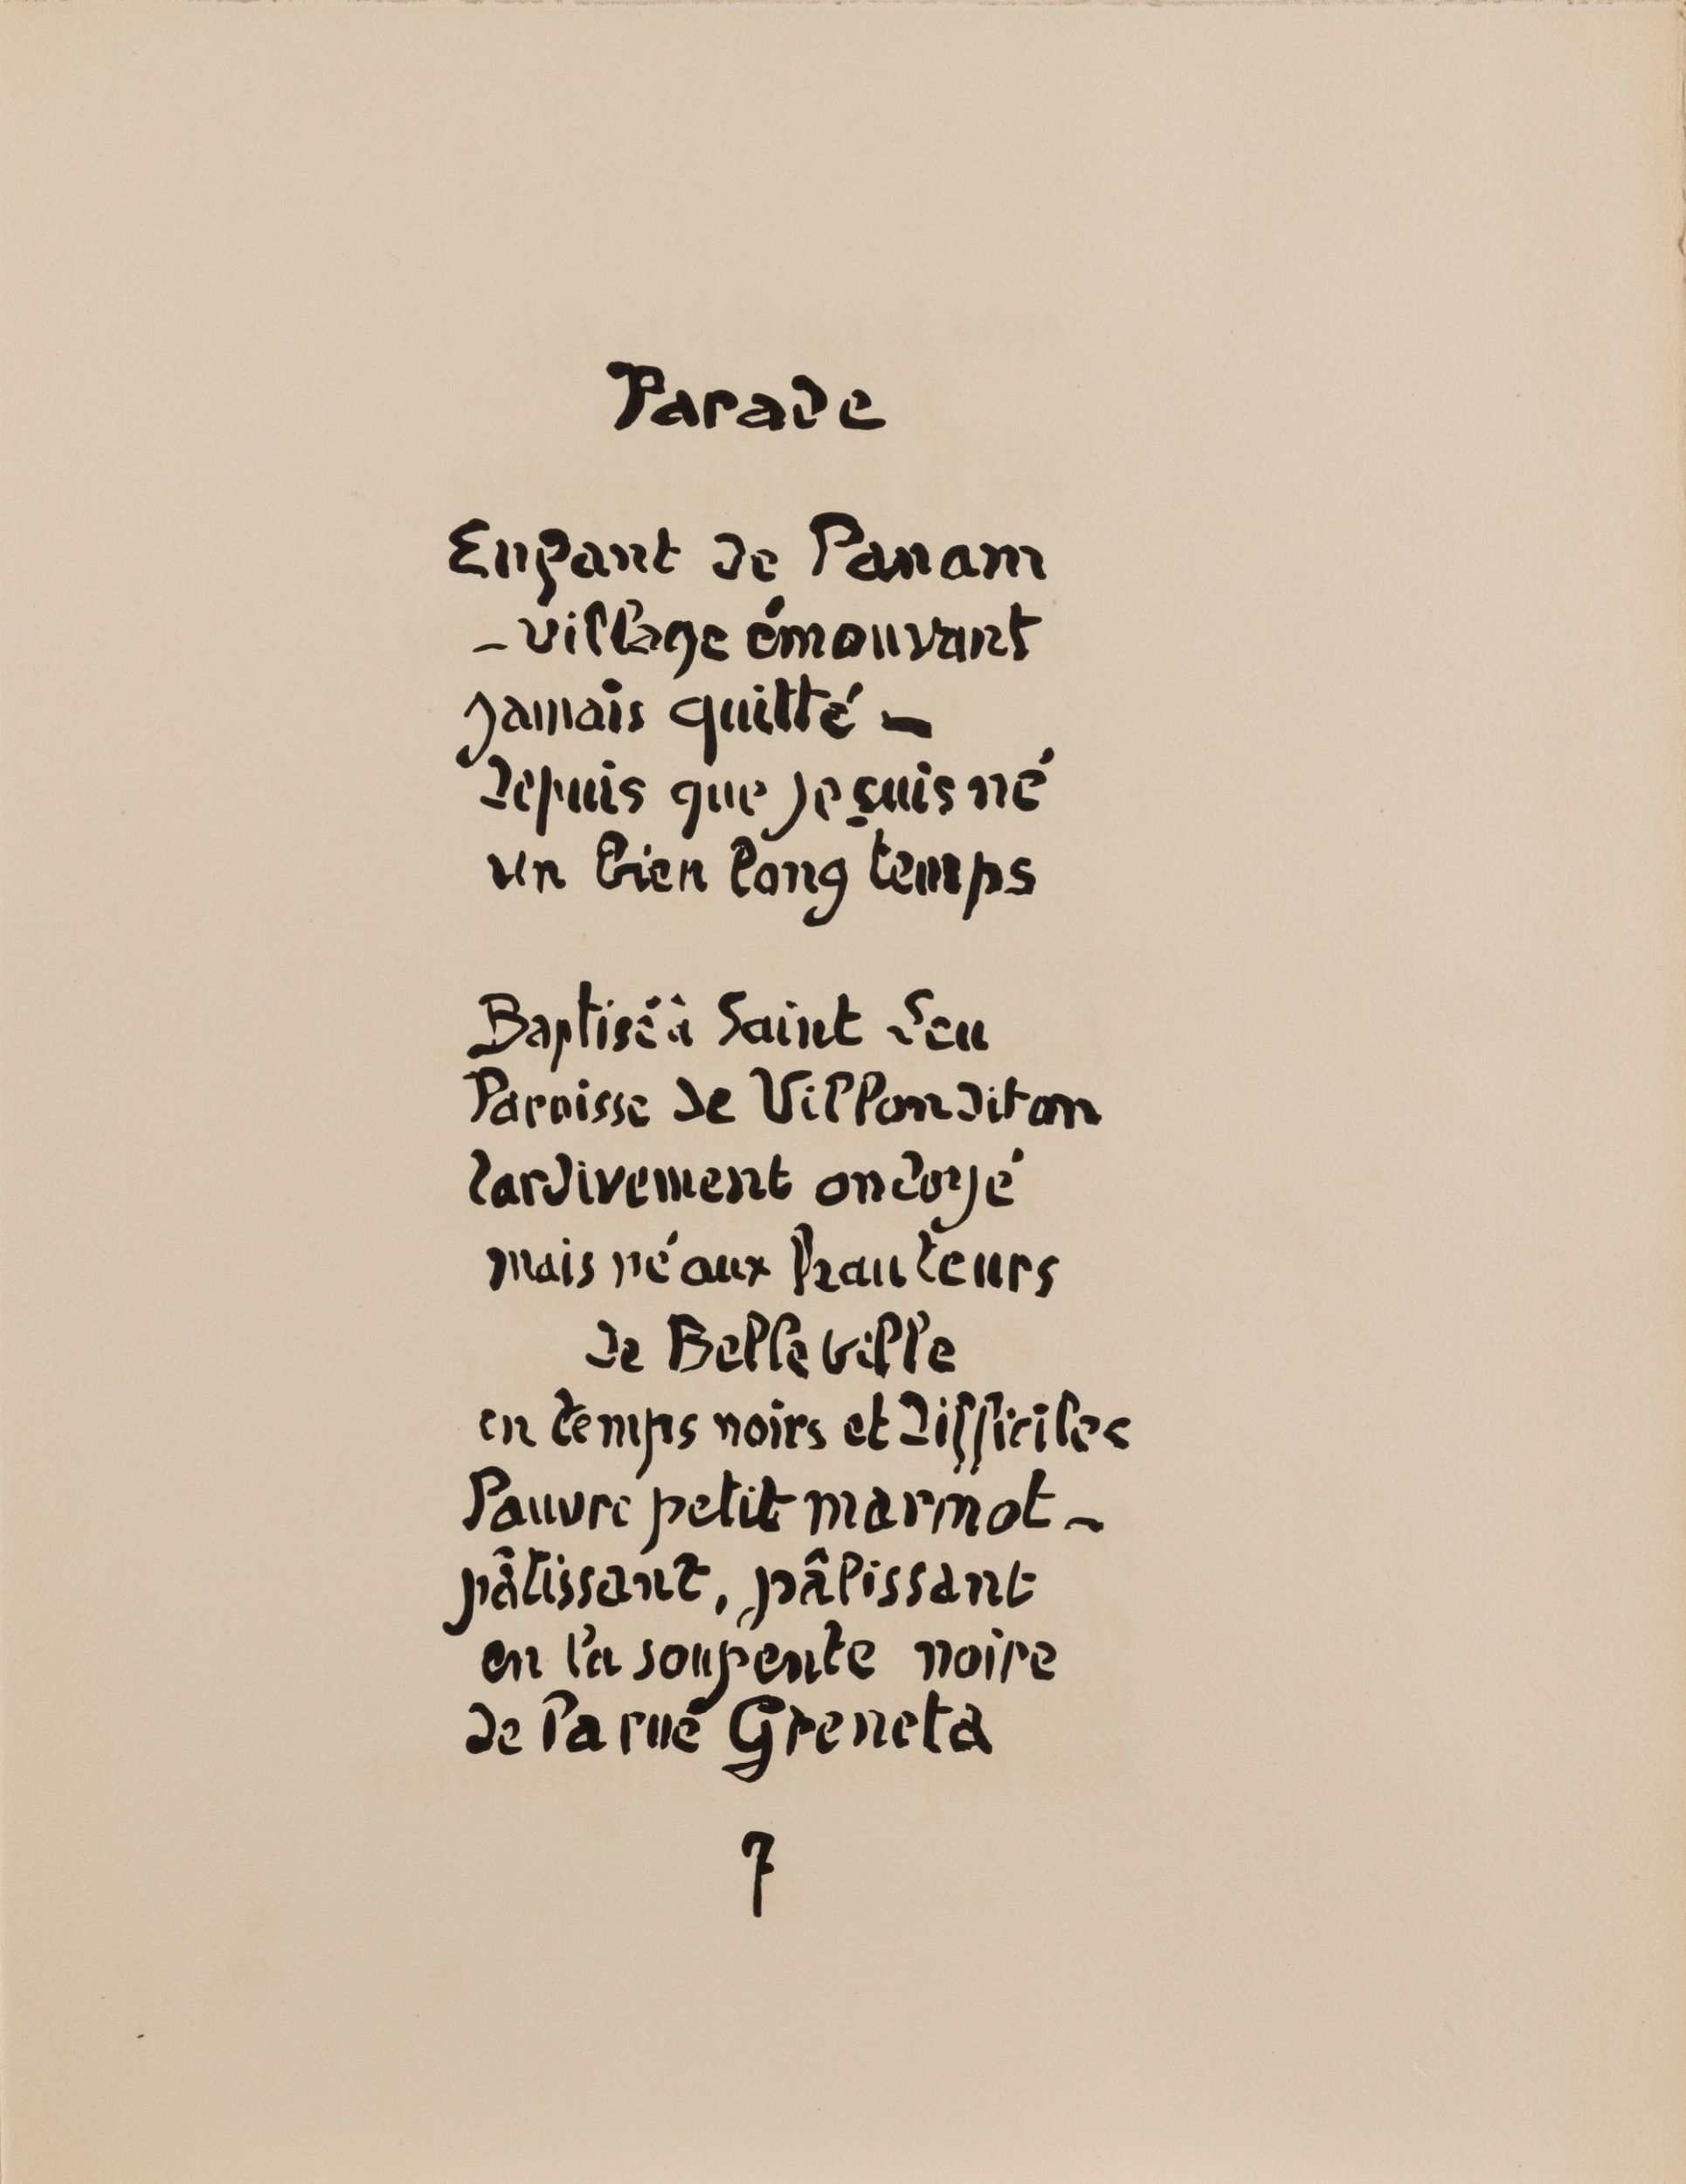 Parade
Enfant de Panam
- village émouvant
jamais quitté -
depuis que je suis né
un bien long temps
Baptisé à Saint Leu
Paroisse de Villon dit on
tardivement ondoyé
mais né aux hauteurs
de Belleville
en temps noirs et difficiles
Pauvre petit marmot -
pâtissant, pâlissant
en la soupente noire
de la rue Greneta
7